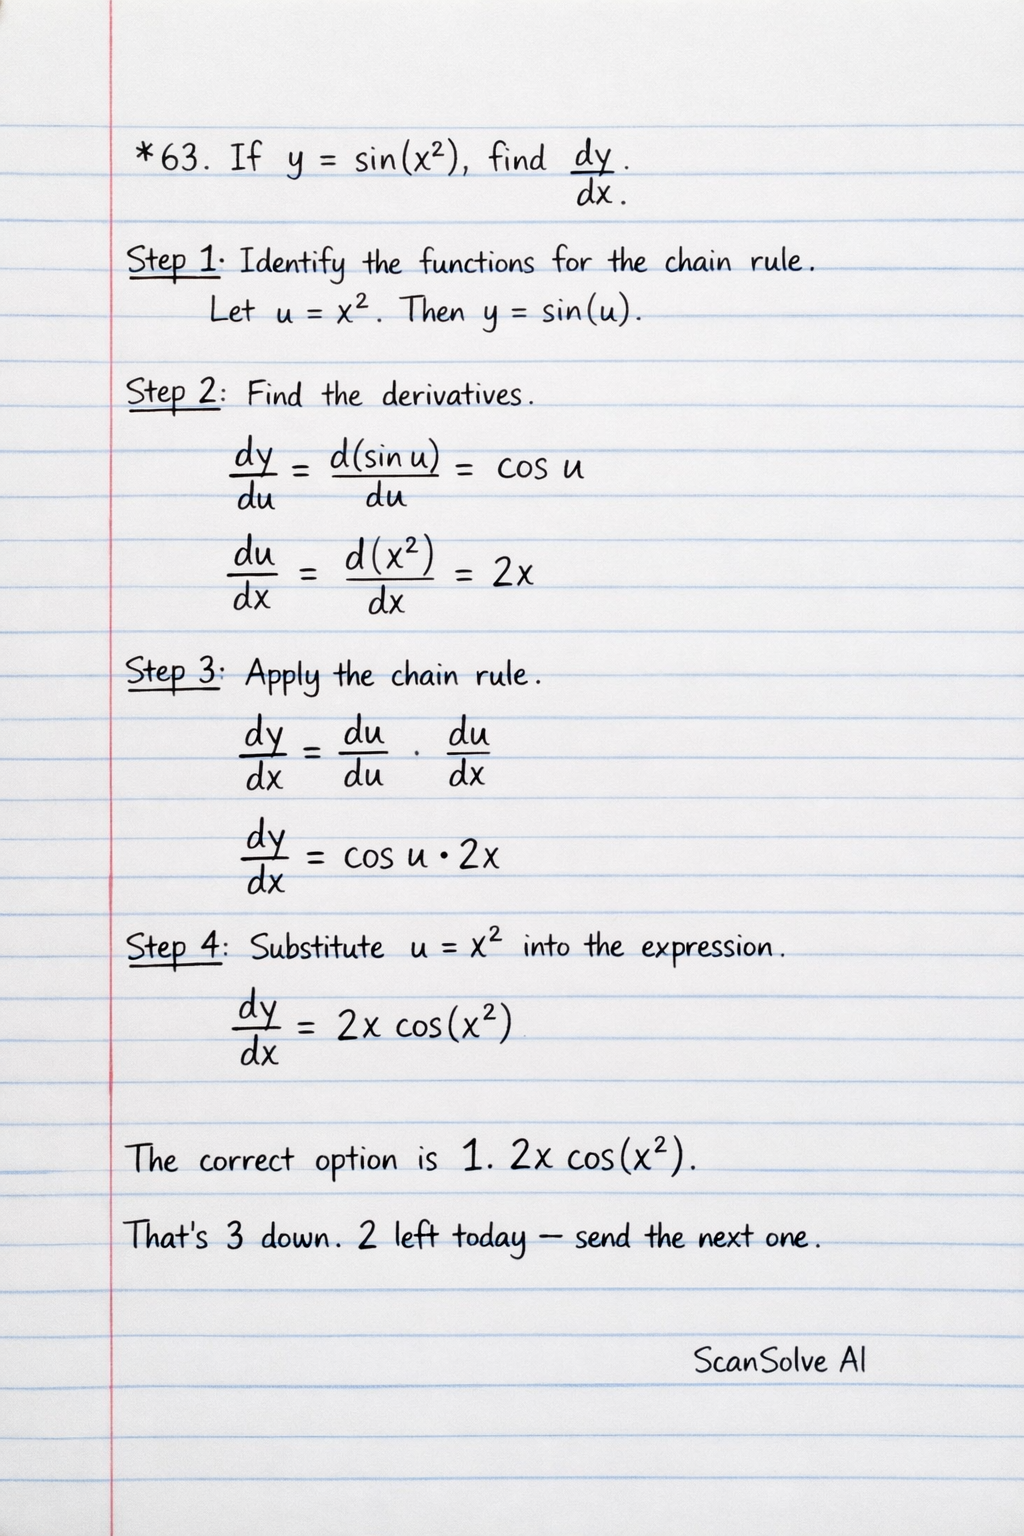 *63. If y = sin(x²), find dy/dx.
Step 1: Identify the functions for the chain rule.
Let u = x². Then y = sin(u).
Step 2: Find the derivatives.
dy/du = d(sin u)/du = cos u
du/dx = d(x²)/dx = 2x
Step 3: Apply the chain rule.
dy/dx = du/du · du/dx
dy/dx = cos u · 2x
Step 4: Substitute u = x² into the expression.
dy/dx = 2x cos(x²)
The correct option is 1. 2x cos(x²).
That's 3 down. 2 left today — send the next one.
ScanSolve AI